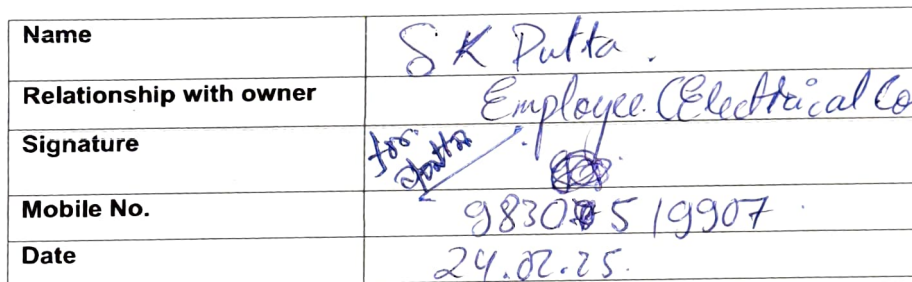 Name S K Dutta.
Relationship with owner Employee (Electrical Co
Signature for
Mobile No. 9830519907
Date 24.02.25.